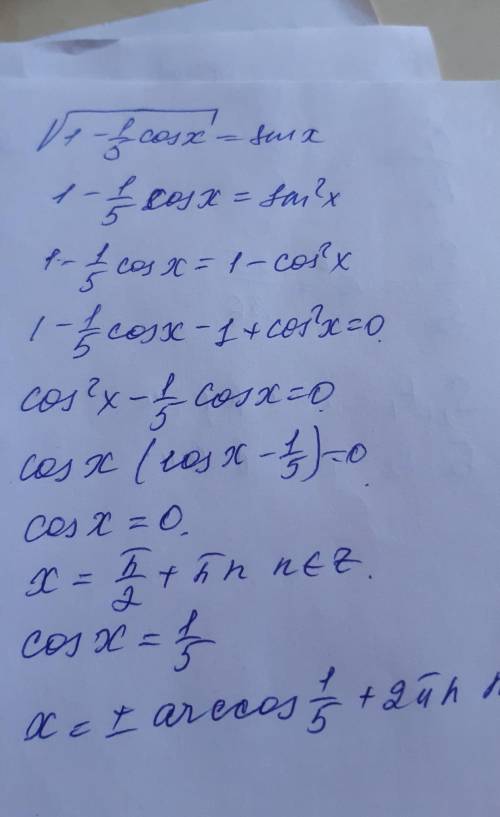 √(1 - 1/5 cos x) = sin x
1 - 1/5 cos x = sin²x
1 - 1/5 cos x = 1 - cos²x
1 - 1/5 cos x - 1 + cos²x = 0
cos²x - 1/5 cos x = 0
cos x (cos x - 1/5) = 0
cos x = 0.
x = π/2 + πn n ∈ Z.
cos x = 1/5
x = ± arccos 1/5 + 2πn